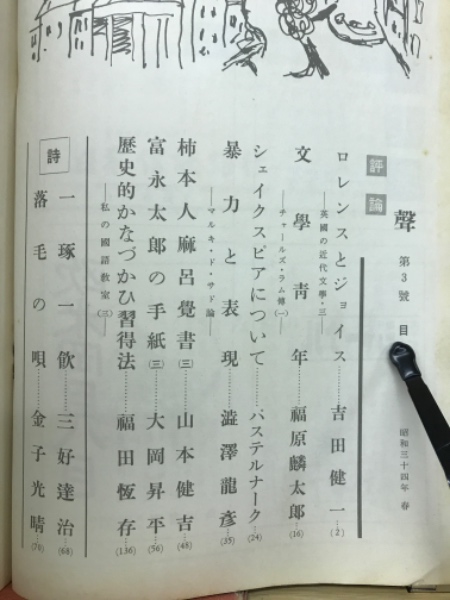 聲 第3號 目
昭和三十四年 春
評論
ロレンスとジョイス………吉田健一…(2)
――英國の近代文學・三――
文學靑年………福原麟太郎…(16)
――チャールズ・ラム傳(一)――
シェイクスピアについて………パステルナーク…(24)
暴力と表現………澁澤龍彥…(35)
――マルキ・ド・サド論――
柿本人麻呂覺書(三)………山本健吉…(45)
富永太郎の手紙(三)………大岡昇平…(56)
歷史的かなづかひ習得法………福田恆存…(136)
――私の國語敎室(三)――
詩
一琢一飮………三好達治…(68)
落毛の唄………金子光晴…(70)